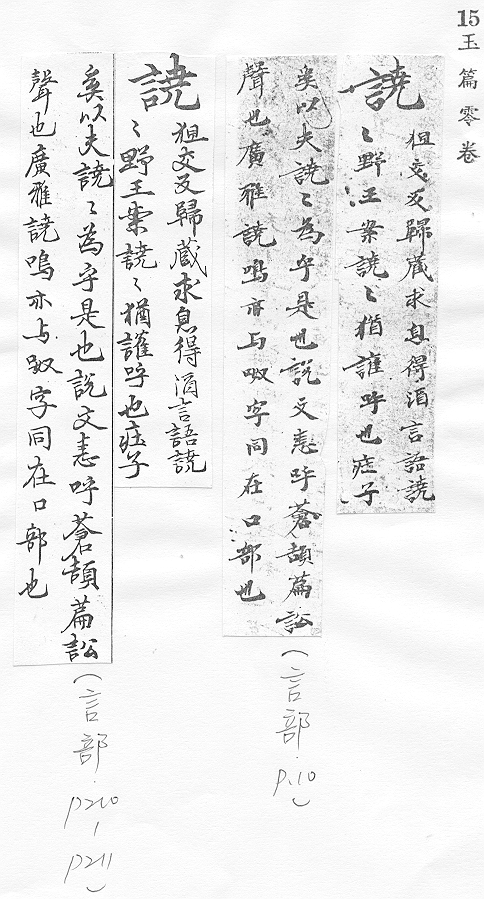 15玉篇零卷
譊
狙交反歸藏求息得酒言語譊
〻野王案譊〻猶讙呼也疰子
奚以夫譊〻為乎是也說文恚呼蒼頡篇訟
聲也廣雅譊鳴亦与呶字同在口部也
(言部.P.10)
譊
狙交反歸藏求息得酒言語譊
〻野王案譊〻猶讙呼也疰子
奚以夫譊〻為乎是也說文恚呼蒼頡篇訟
聲也廣雅譊鳴亦与呶字同在口部也
(言部.P210-P211)